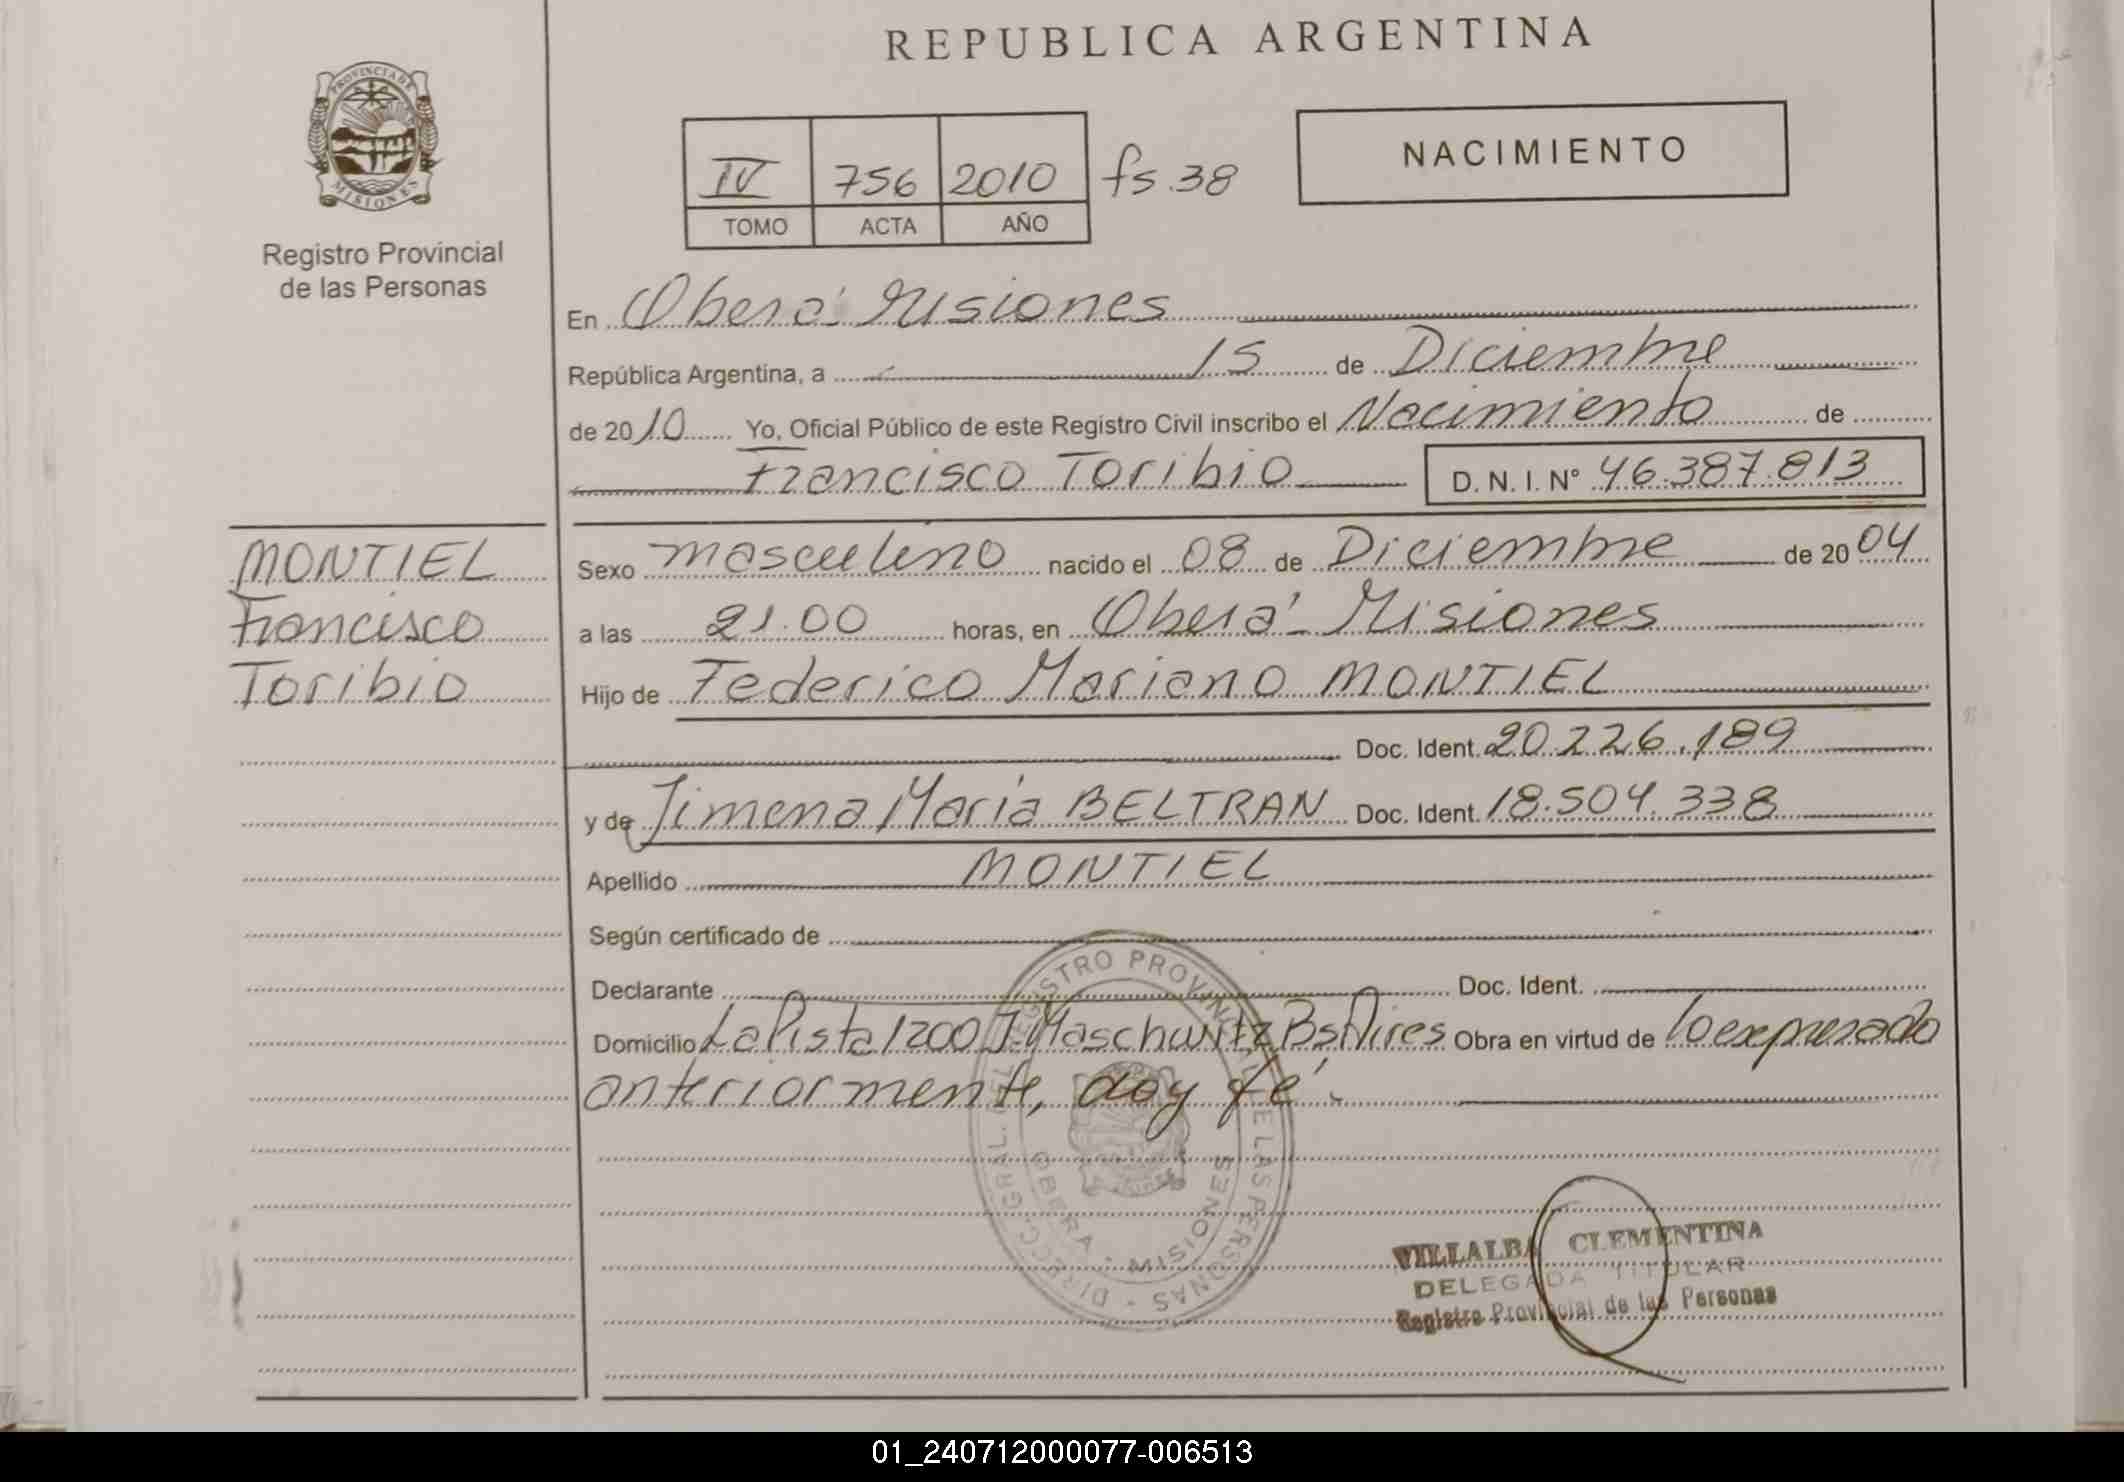 REPUBLICA ARGENTINA
PROVINCIA DE
MISIONES
Registro Provincial
de las Personas
IV 756 2010 fs.38
TOMO ACTA AÑO
NACIMIENTO
En Oberá Misiones
República Argentina, a 15 de Diciembre
de 2010 Yo, Oficial Público de este Registro Civil inscribo el Nacimiento de
Francisco Toribio D.N.I. Nº 46.387.813
MONTIEL
Francisco
Toribio
Sexo masculino nacido el 08 de Diciembre de 2004
a las 21.00 horas, en Oberá - Misiones
Hijo de Federico Mariano MONTIEL
Doc. Ident. 20.226.189
y de Jimena María BELTRAN Doc. Ident. 18.504.338
Apellido MONTIEL
Según certificado de
Declarante Doc. Ident.
Domicilio La Pista 1200 I. Maschwitz Bs Aires Obra en virtud de lo expresado
anteriormente, doy fé.
DIRECC. GRAL. DEL REGISTRO PROVINCIAL DE LAS PERSONAS
OBERA - MISIONES
VILLALBA CLEMENTINA
DELEGADA TITULAR
Registro Provincial de las Personas
01_240712000077-006513